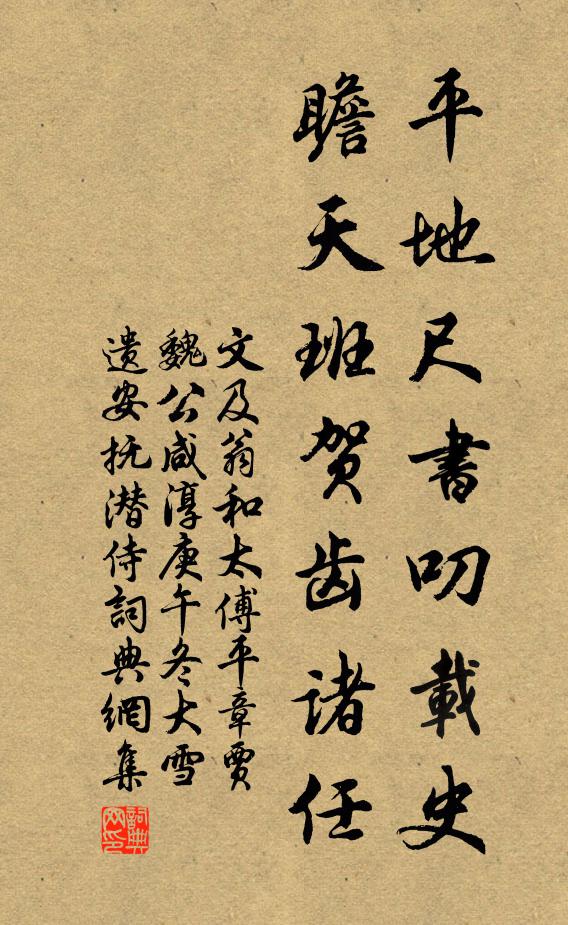 平地尺書叨載史
瞻天班贺齿諸任
文及翁和太傅平章贾
魏公咸淳庚午冬大雪
遗安抚潜侍詞典網集
詞典网印